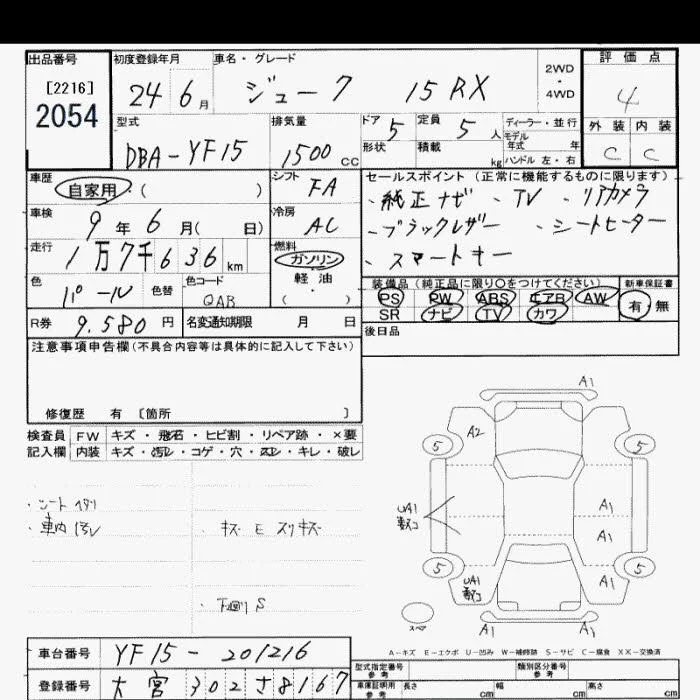 出品番号 初度登録年月 車名・グレード 評価点
[2216]
2054
24 6月 ジューク 15RX 2WD・4WD 4
型式 排気量 ドア 定員 ディーラー・並行 外装 内装
DBA-YF15 1500CC 5 5人 モデル年式 年 C C
形状 積載 kg ハンドル 左・右
車歴 シフト セールスポイント(正常に機能するものに限ります)
自家用 ( ) FA ・純正ナビ ・TV ・リアカメラ
車検 冷房 ・ブラックレザー ・シートヒーター
9年6月( 日) AC ・スマートキー
走行 1万7千636km 燃料 ガソリン
軽油
( )
色 パール 色替 色コード QAB
装備品(純正品に限り○をつけてください) 新車保証書
PS PW ABS エアB AW 有・無
SR ナビ TV カワ
R券 9.580円 名変通知期限 月 日 後日品
注意事項申告欄(不具合内容等は具体的に記入して下さい)
修復歴 有 [箇所 ]
検査員 FW キズ・飛石・ヒビ割・リペア跡・×要
記入欄 内装 キズ・汚レ・コゲ・穴・スレ・キレ・破レ
・シートヘタリ
・車内汚レ ・キズ E スリキズ
・下廻りS
A1
A2
5 5
UA1 A1
A1
5 5
UA1 A1
A1 A1
スペア
A-キズ E-エクボ U-凹み W-補修跡 S-サビ C-腐食 XX-交換済
車台番号 YF15-201216
登録番号 大宮 302 さ 8167
型式指定番号 参考 類別区分番号 参考
車庫証明用 参考 長さ cm 幅 cm 高さ cm